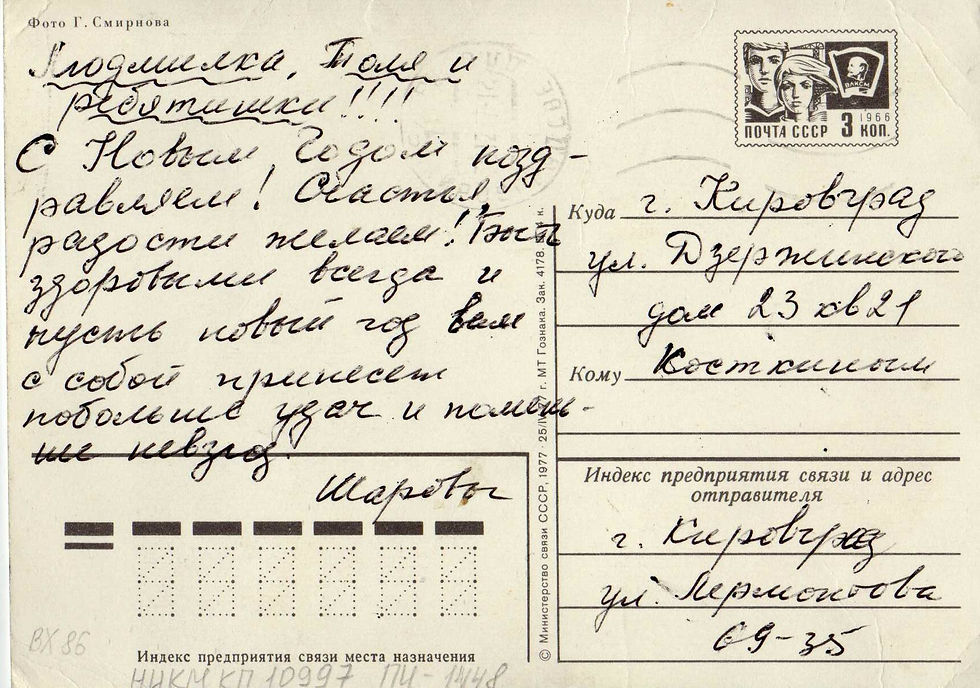 Фото Г. Смирнова
Людмилка, Толя и
ребятишки!!!!
С Новым Годом позд-
равляем! Счастья,
радости желаем! Быть
здоровыми всегда и
пусть новый год вам
с собой принесет
побольше удач и помень-
ше невзгод.
Шаровы
ВЛКСМ
1966
ПОЧТА СССР 3 КОП.
Куда г. Кировград
ул. Дзержинского
дом 23 кв 21
Кому Косткиным
Индекс предприятия связи и адрес
отправителя
г. Кировград
ул. Лермонтова
69-35
© Министерство связи СССР, 1977 · 25/IV г. МТ Гознака. Зак. 4178. к.
Индекс предприятия связи места назначения
ВХ 86
НИКМ КП 10997 ПИ-1448